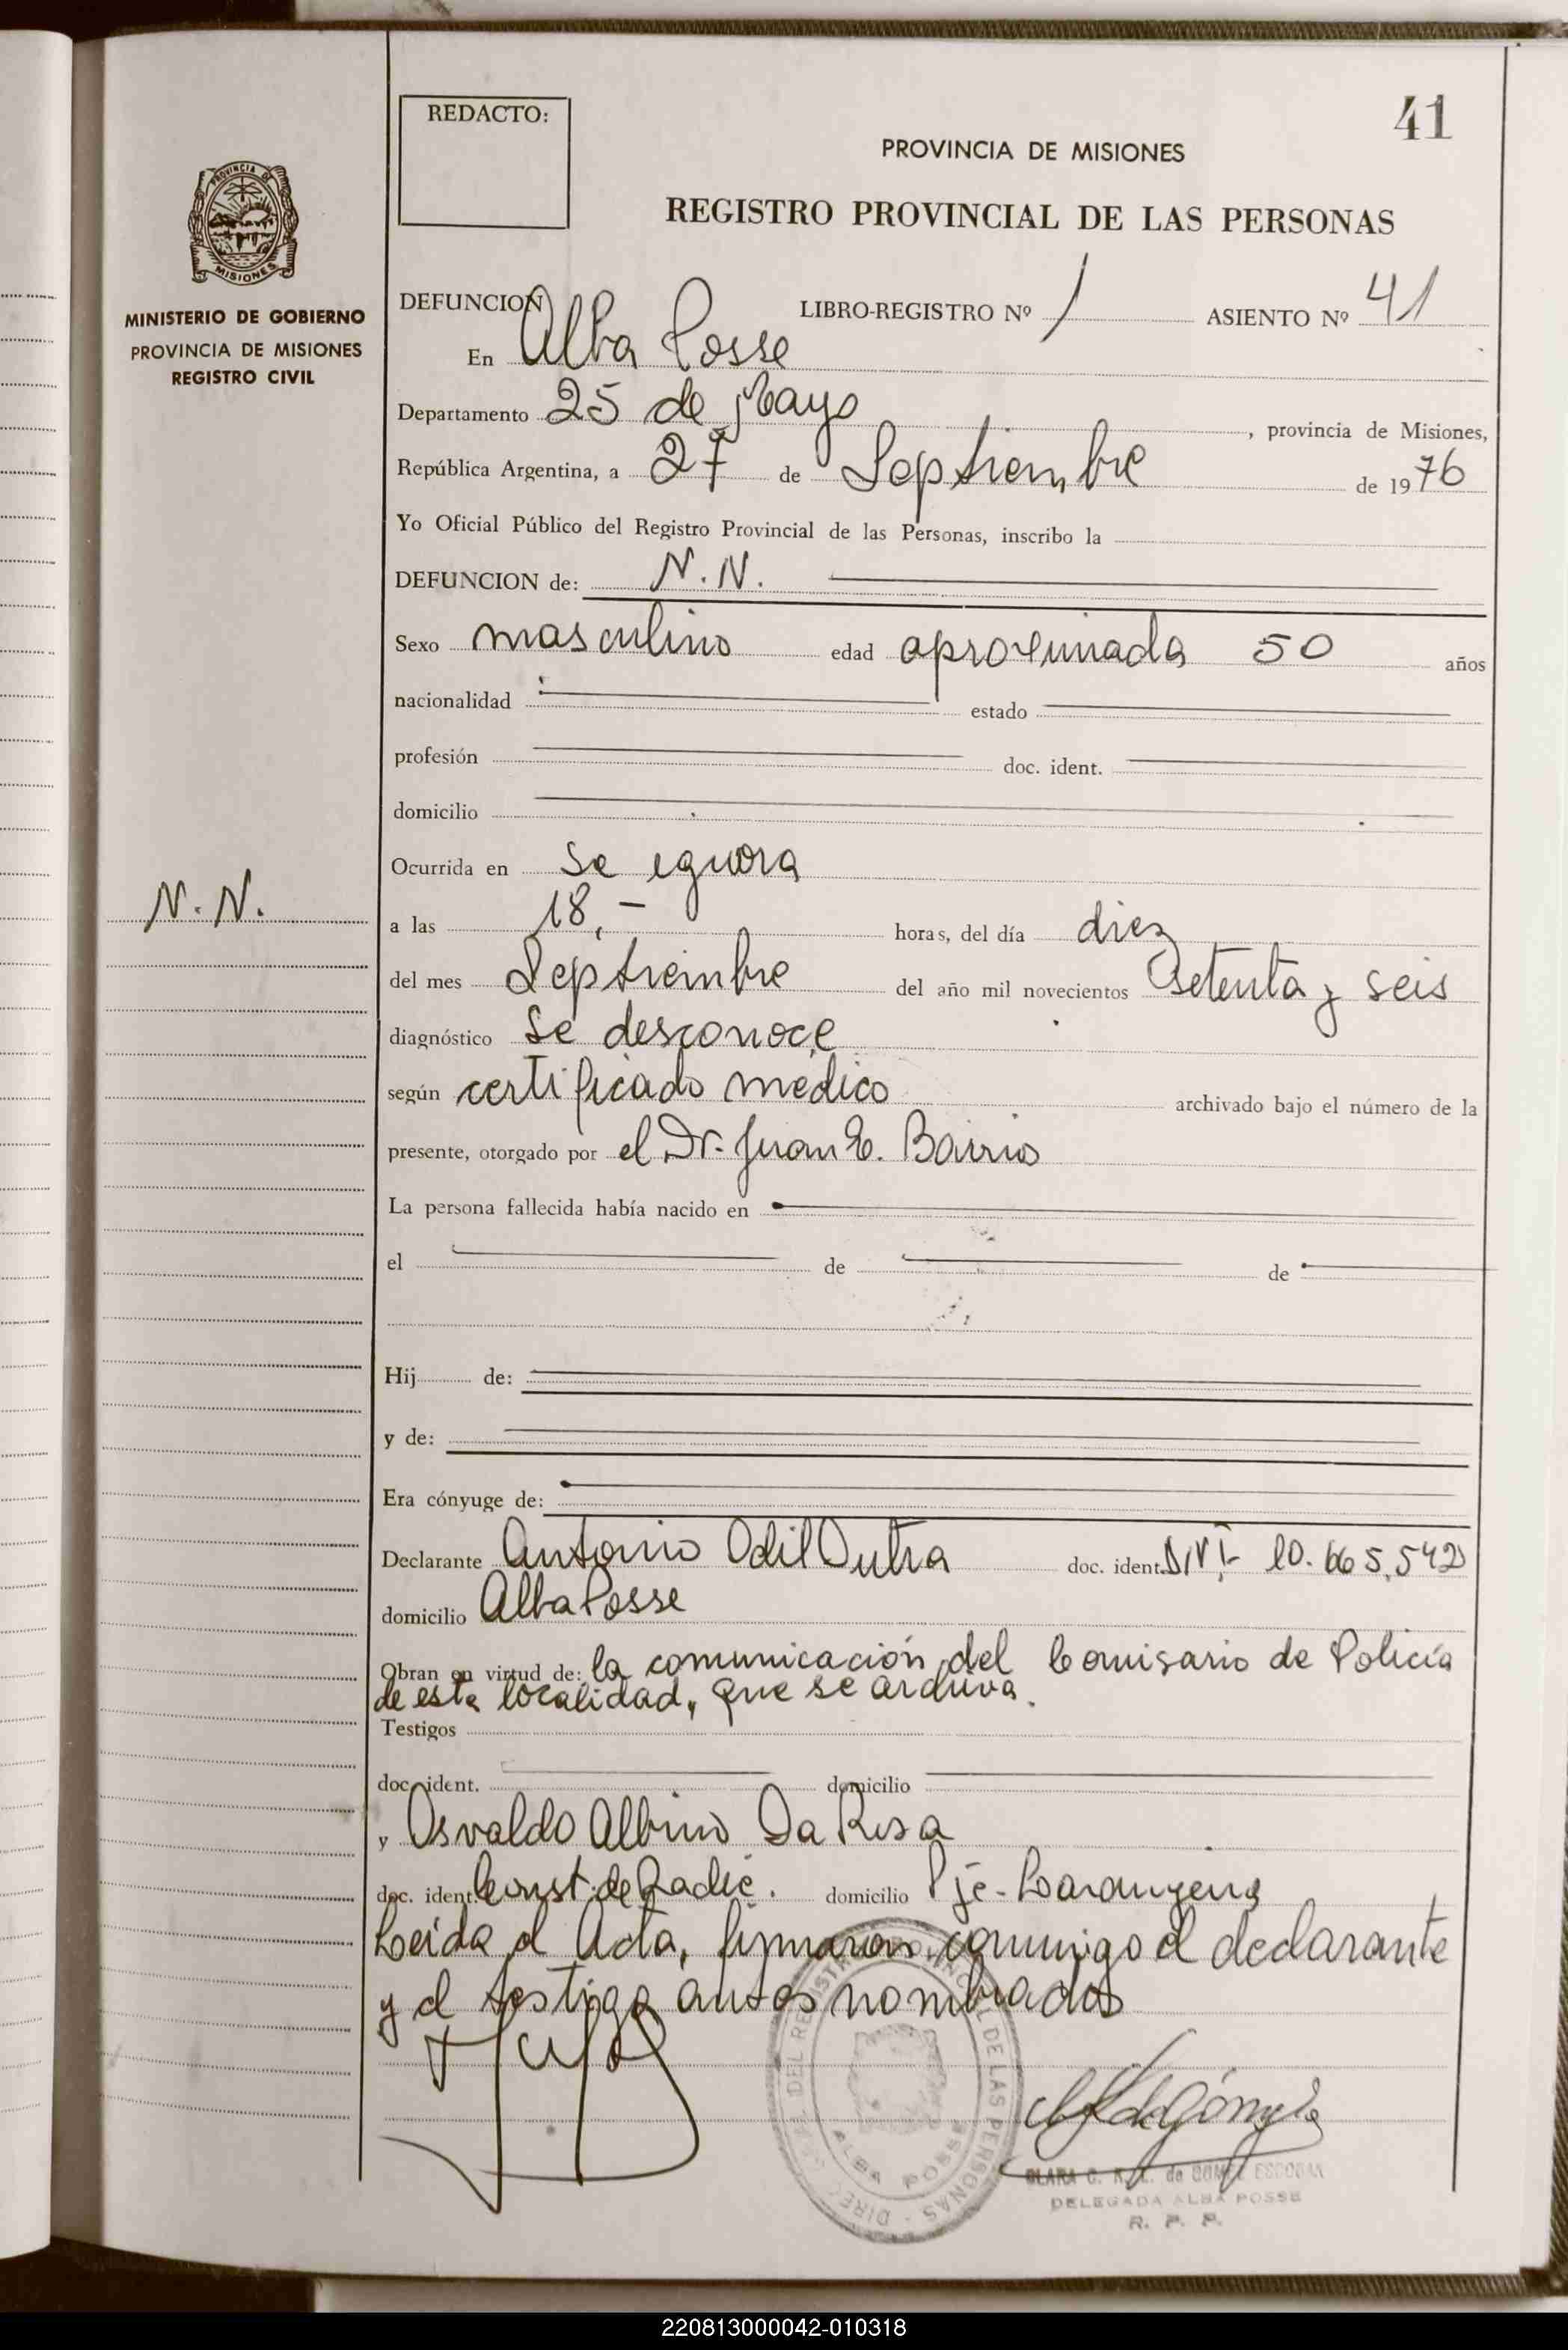 41
REDACTO:
PROVINCIA DE MISIONES
REGISTRO PROVINCIAL DE LAS PERSONAS
PROVINCIA DE
MISIONES
MINISTERIO DE GOBIERNO
PROVINCIA DE MISIONES
REGISTRO CIVIL
DEFUNCION LIBRO-REGISTRO Nº 1 ASIENTO Nº 41
En Alba Posse
Departamento 25 de Mayo, provincia de Misiones,
República Argentina, a 27 de Septiembre de 1976
Yo Oficial Público del Registro Provincial de las Personas, inscribo la
DEFUNCION de: N.N.
Sexo masculino edad aproximada 50 años
nacionalidad estado
profesión doc. ident.
domicilio
Ocurrida en se ignora
N.N.
a las 18,- horas, del día diez
del mes Septiembre del año mil novecientos Setenta y seis
diagnóstico Se desconoce
según certificado médico archivado bajo el número de la
presente, otorgado por el Dr. Juan E. Barrios
La persona fallecida había nacido en
el de de
Hij de:
y de:
Era cónyuge de:
Declarante Antonio Odil Dutra doc. ident. 10.665.542
domicilio Alba Posse
Obran en virtud de: la comunicación del Comisario de Policía
de esta localidad, que se archiva.
Testigos
doc. ident. domicilio
y Osvaldo Albino Da Rosa
doc. ident. Const. de Radic. domicilio Pje.
Leida el Acta, firmaron conmigo el declarante
y el testigo antes nombrados
DEL REGISTRO PROVINCIAL DE LAS PERSONAS
ALBA POSSE
CLARA C. de GOMEZ ESCOBAR
DELEGADA ALBA POSSE
R. P. P.
220813000042-010318